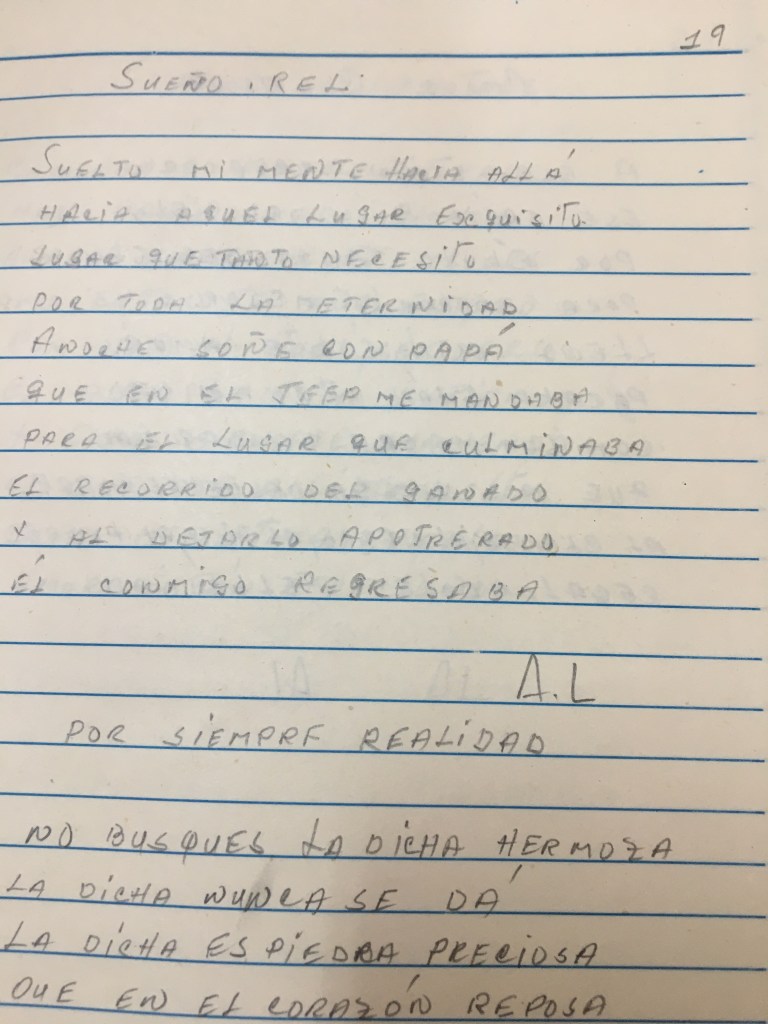 19
SUEÑO . REL.
SUELTO MI MENTE HACIA ALLÁ
HACIA AQUEL LUGAR EXQUISITO
LUGAR QUE TANTO NECESITO
POR TODA LA ETERNIDAD
ANOCHE SOÑE CON PAPÁ
QUE EN EL JEEP ME MANDABA
PARA EL LUGAR QUE CULMINABA
EL RECORRIDO DEL GANADO
Y AL DEJARLO APOTRERADO
ÉL CONMIGO REGRESABA
A.L
POR SIEMPRE REALIDAD
NO BUSQUES LA DICHA HERMOZA
LA DICHA NUNCA SE DÁ
LA DICHA ES PIEDRA PRECIOSA
QUE EN EL CORAZÓN REPOSA